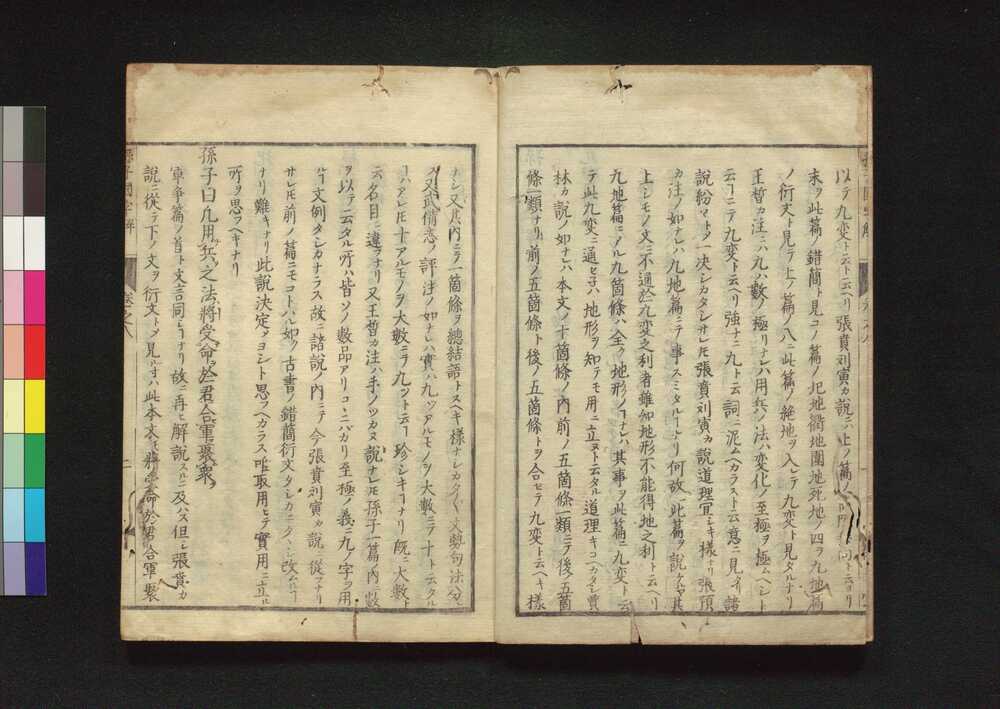 以テ九変ト云ト云ヘリ張賁刘寅カ説ニハ上ノ篇ノ
末ヲ此篇ノ錯簡ト見コノ篇ノ圮地衢地圍地死地ノ四ヲ九地篇
ノ衍文ト見テ上ノ篇ノ八ニ此篇ノ絶地ヲ入レテ九変ト見タルナリ
王晳カ注ニハ九ハ数ノ極リナレハ用兵ノ法ハ変化ノ至極ヲ極ムヘシト
云ヿニテ九変ト云ヘリ強ニ九ト云詞ニ泥ムヘカラスト云意ニ見ユ諸
説紛マトノ一決シカタシサレ𪜈張賁刘寅カ説道理宜シキ様ナリ張預
カ注ノ如ナレハ九地篇ニテ事スミタルヿナリ何故ニ此篇ヲ説
上シモノ文ニ不通於九変之利者雖知地形不能得地之利ト云ヘリ
九地篇ニノル九箇條ハ全ク地形ノヿナレハ其事ヲ此篇ニ九変ト云
テ此九変ニ通セ子ハ地形ヲ知テモ用ニ立ヌト云タル道理キコヘカタシ賈
林カ説ノ如ナレハ本文ノ十箇條ノ内前ノ五箇條一類ニテ後ノ五箇
條一類ナリ前ノ五箇條ト後ノ五箇條トヲ合セテ九変ト云ヘキ様
ナシ又其内ニテ一箇條ヲ總結語トスヘキ様ナレカタク文勢句法分
又武備志ノ評注ノ如ナレハ實ハ九ツアルモノヲ大數ニテ十ト云タル
ヿハアレ𪜈十アルモノヲ大數ニテ九ツト云ヿ珍シキヿナリ既ニ大數ト
云名目ニ違ヲナリ又王晳カ注ハ手ノツカヌ説ナレ𪜈孫子一篇ノ内數
ヲ以テ云タル所ハ皆ソノ數品アリコヽニバカリ至極ノ義ニ九ノ字ヲ用
ヿ文例タシカナラス故ニ諸説ノ内ニテ今張賁刘寅カ説ニ從フナリ
サレ𪜈前ノ篇ニモコトハル如ク古書ノ錯簡衍文タシカニタトシ改ムヿ
ナリ難キナリ此説決定メヨシト思フヘカラス唯取用ヒテ實用ニ立ル
所ヲ思フヘキナリ
孫子曰凡用兵之法將受命於君合軍聚衆
軍争篇ノ首ト文言同シヿナリ故ニ再ヒ解説スルニ及ハス但シ張賁カ
説ニ從テ下ノ文ヲ衍文ト見ルヿハ此本文モ將受命於君合軍聚